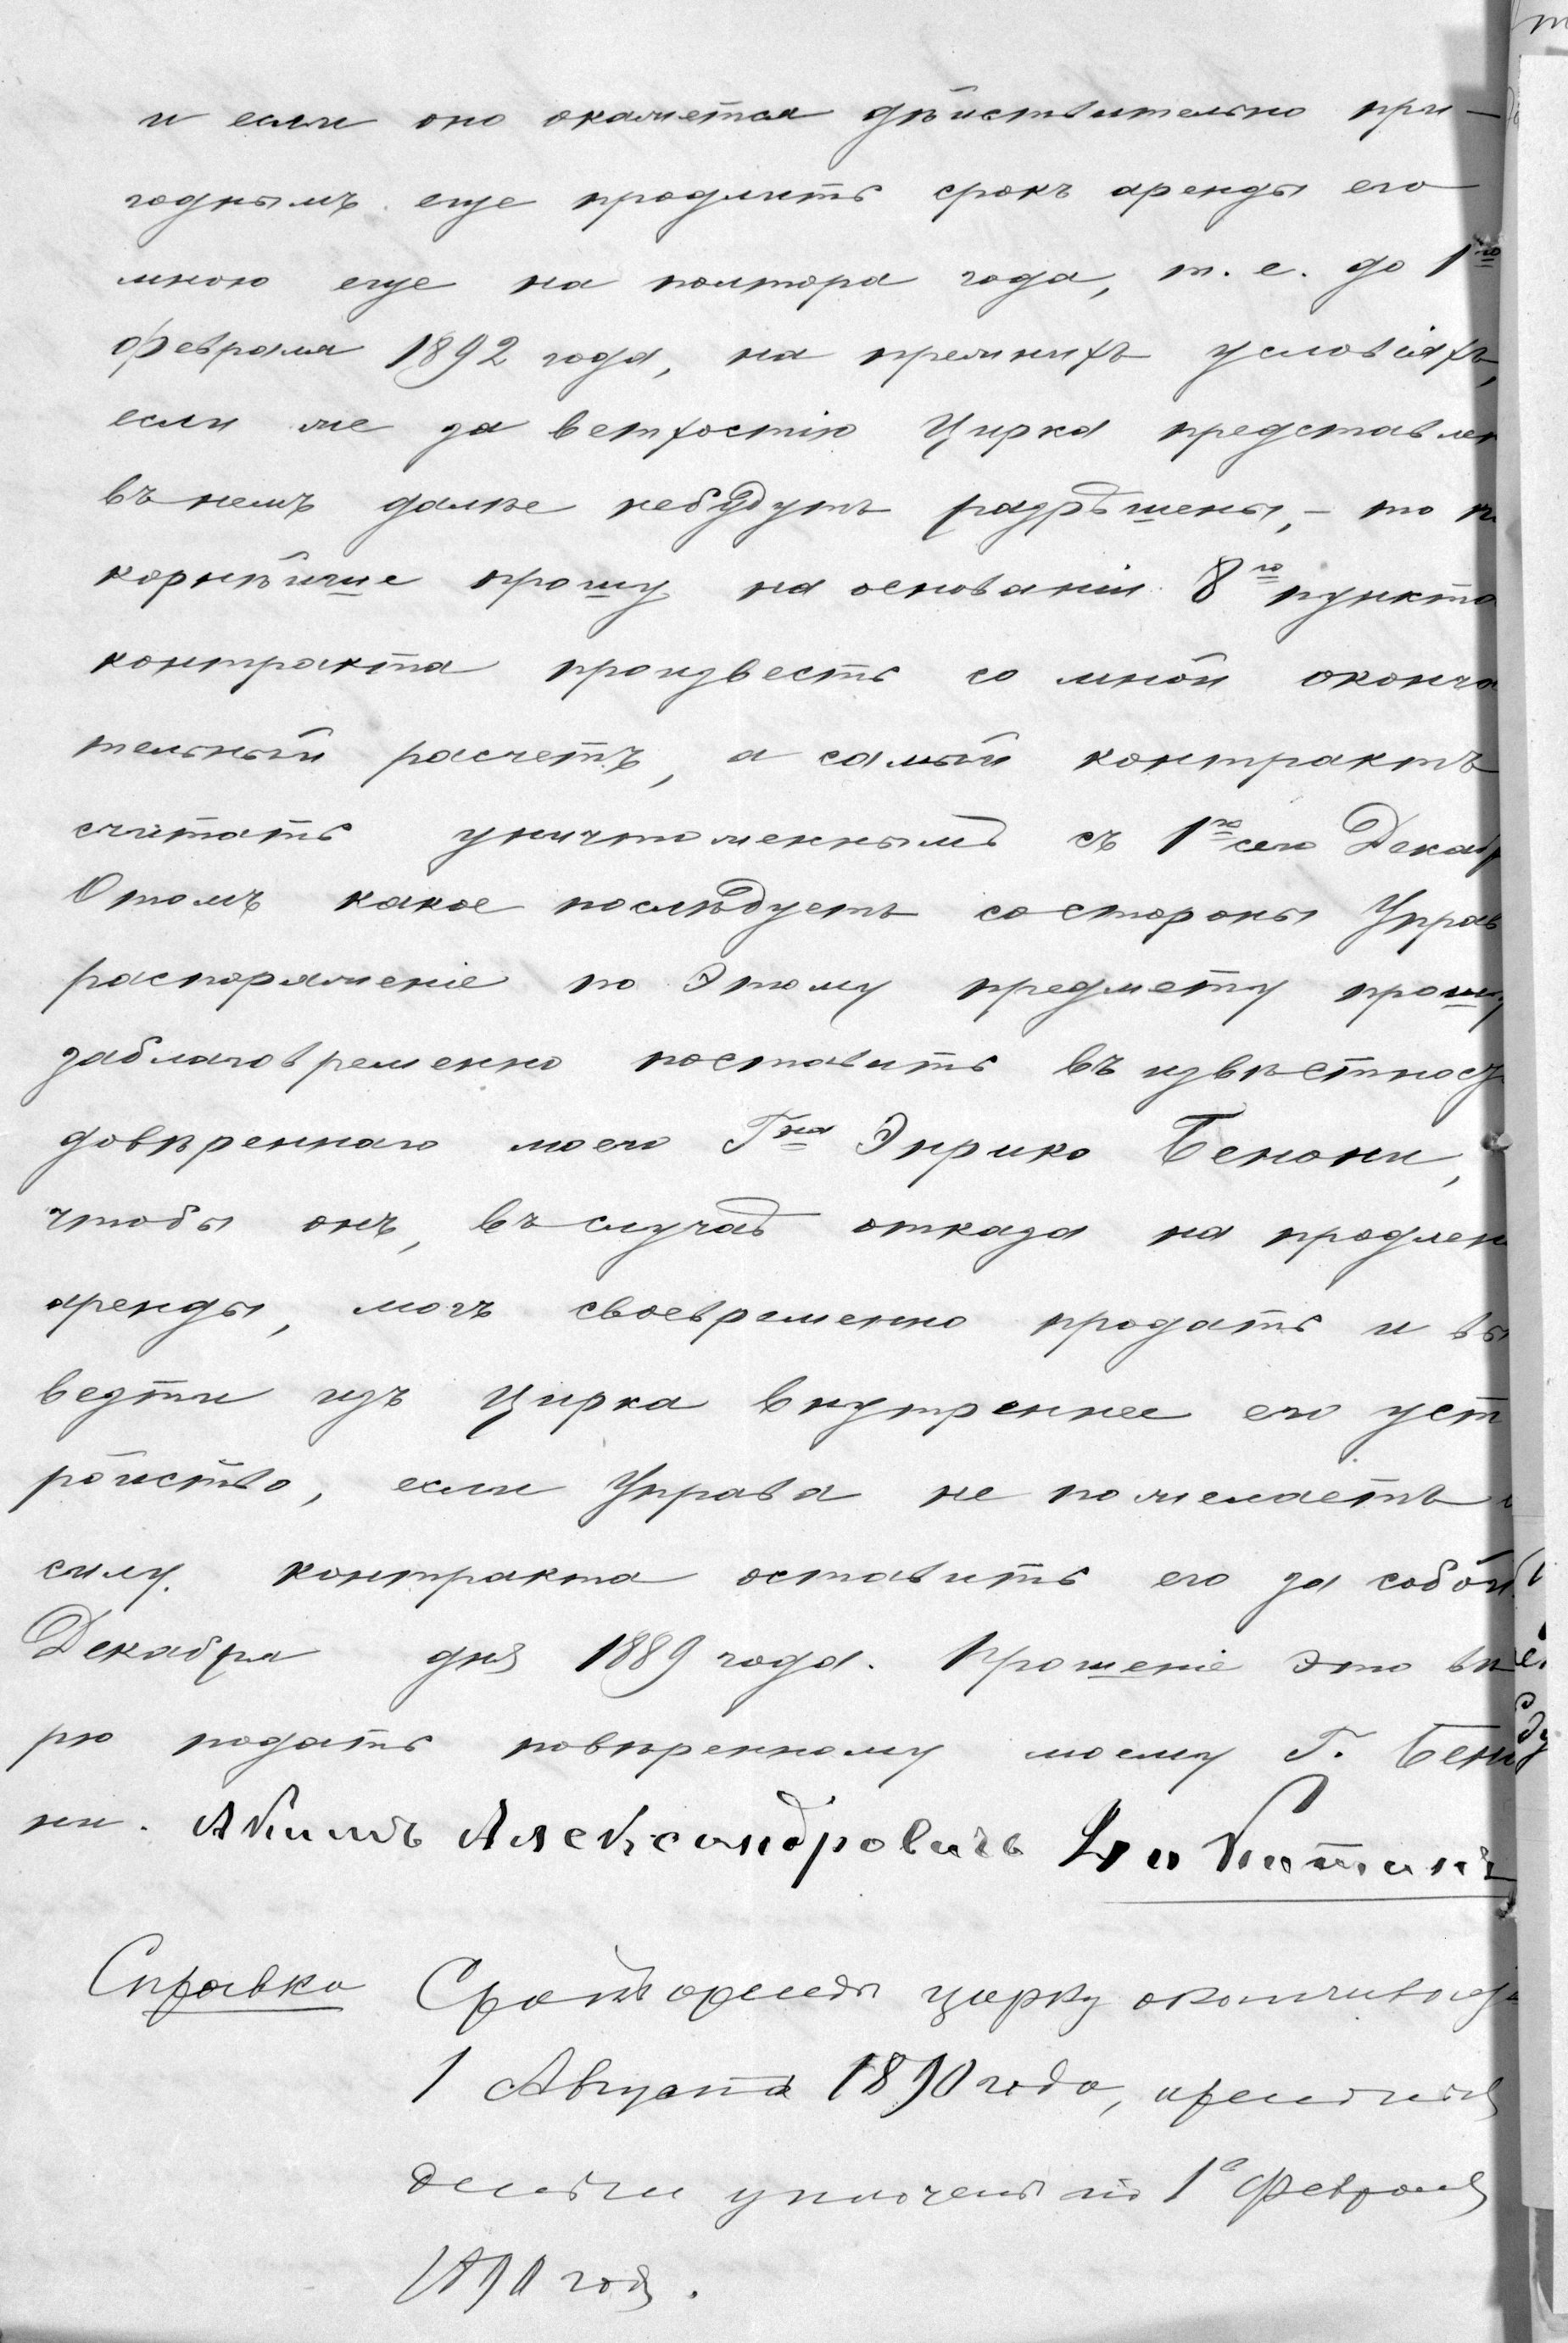 и если оно окажется дѣйствительно при-
годнымъ еще продлить срокъ аренды его
мною еще на полтора года, т. е. до 1го
февраля 1892 года, на прежнихъ условіяхъ,
если же за ветхостію Цирка представлен
въ немъ далѣе небудутъ разрѣшены, - то п
корнѣйше прошу на основаніи 8го пункта
контракта произвесть со мной оконча
тельный расчетъ, а самый контрактъ
считать уничтоженнымъ съ 1го сего Декабр
Отомъ какое послѣдуетъ состороны Управ
распоряженіе по этому предмету прошу
заблаговременно поставить въ извѣстнос
довѣреннаго моего Гна Энрико Бенони,
чтобы онъ, въ случаѣ отказа на продлен
аренды, могъ своевременно продать и вы
везти изъ Цирка внутреннее его уст
ройство, если Управа не пожелаетъ
силу контракта оставить его за собой.
Декабря дня 1889 года. Прошеніе это вѣ
рю подать повѣренному моему Г. Бено
ни. Акимъ Александровичъ Никитинъ
Справка Срокъ аренды цирку оканчивается
1 Августа 1890 года, арендныя
деньги уплочены по 1е Февраля
1890 года.